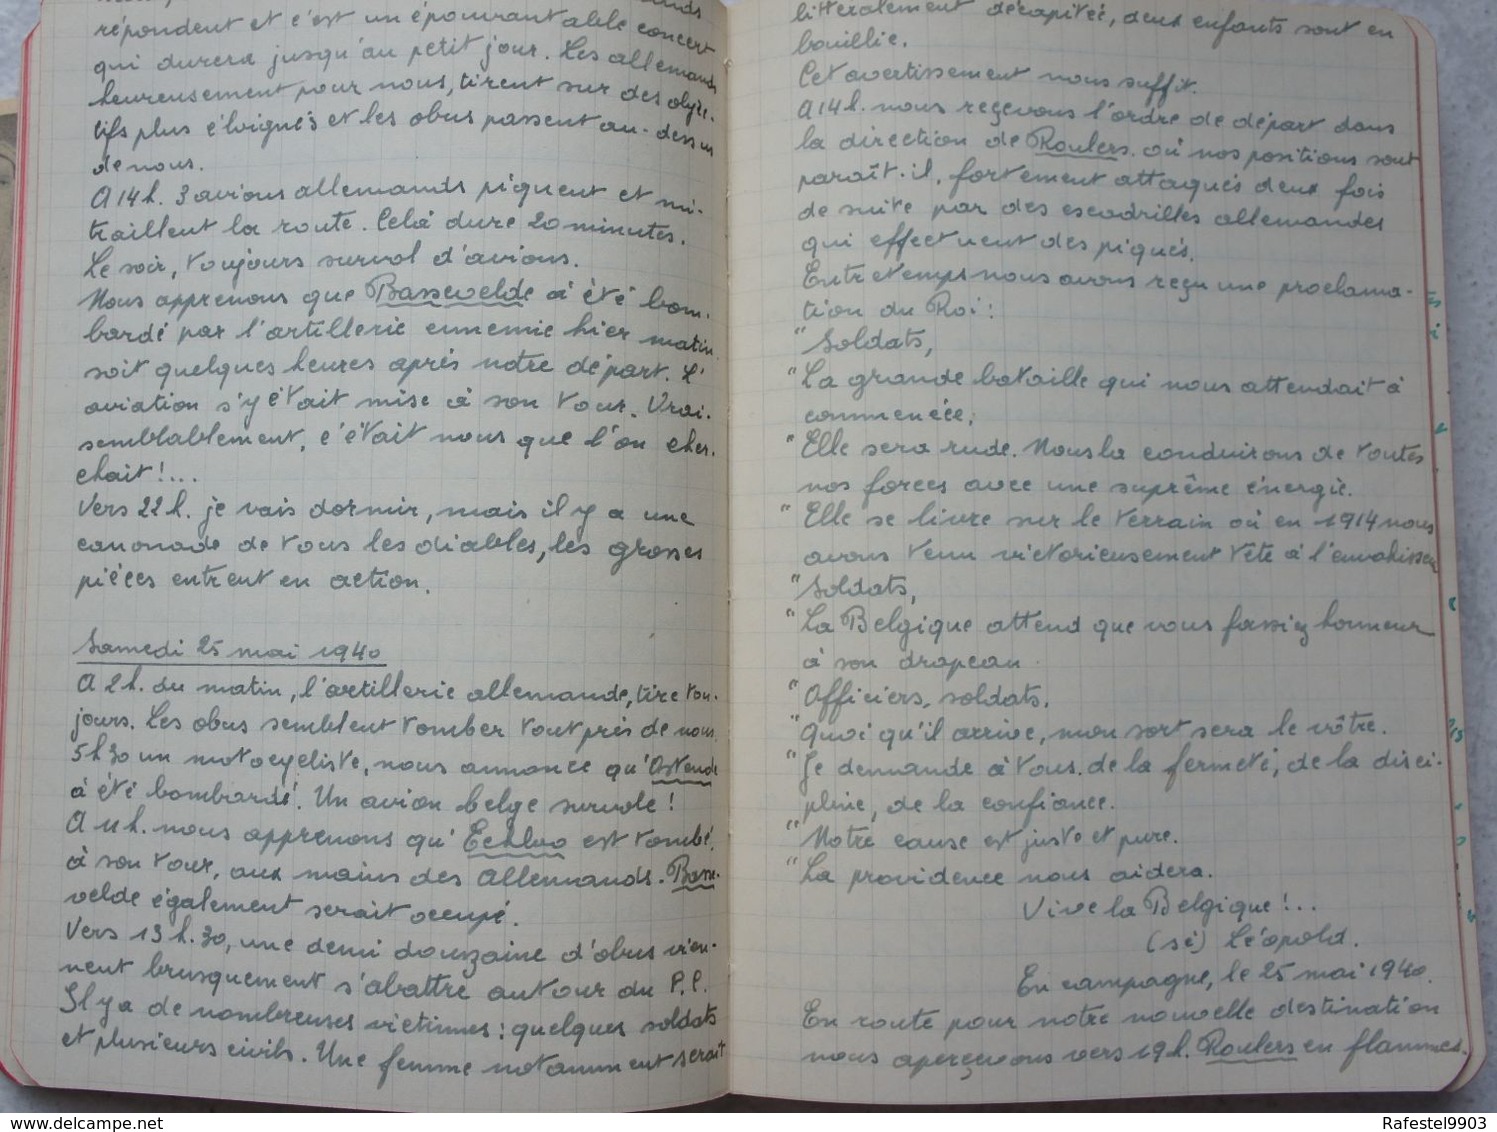 répondent et c'est un épouvantable concert
qui durera jusqu'au petit jour. Les allemands
heureusement pour nous, tirent sur des objec-
tifs plus éloignés et les obus passent au-dessus
de nous.
A 14 h. 3 avions allemands piquent et mi-
traillent la route. Celà dure 20 minutes.
Le soir, toujours survol d'avions.
Nous apprenons que Bassevelde a été bom-
bardé par l'artillerie ennemie hier matin
soit quelques heures après notre départ. L'
aviation s'y était mise à son tour. Vrai-
semblablement, c'était nous que l'on cher-
chait!...
Vers 22 h. je vais dormir, mais il y a une
canonade de tous les diables, les grosses
pièces entrent en action.
Samedi 25 mai 1940
A 2 h. du matin, l'artillerie allemande, tire tou-
jours. Les obus semblent tomber tout près de nous.
5 h 30 un motocycliste, nous annonce qu'Ostende
a été bombardé. Un avion belge survole!
A 11 h. nous apprenons qu'Eekloo est tombé,
à son tour, aux mains des Allemands. Basse-
velde également serait occupé.
Vers 13 h. 30, une demi douzaine d'obus vien-
nent brusquement s'abattre autour du P.C.
Il y a de nombreuses victimes: quelques soldats
et plusieurs civils. Une femme notamment serait
littéralement décapitée, deux enfants sont en
bouillie.
Cet avertissement nous suffit.
A 14 h. nous reçevons l'ordre de départ dans
la direction de Roulers. où nos positions sont
paraît-il, fortement attaqués deux fois
de suite par des escadrilles allemandes
qui effectuent des piqués.
Entretemps nous avons reçu une proclama-
tion du Roi:
"Soldats,
"La grande bataille qui nous attendait à
commencée.
"Elle sera rude. Nous la conduirons de toutes
nos forces avec une suprême énergie.
"Elle se livre sur le terrain où en 1914 nous
avons tenu victorieusement tête à l'envahisseur
"Soldats,
"La Belgique attend que vous fassiez honneur
à son drapeau.
"Officiers, soldats.
"Quoi qu'il arrive, mon sort sera le vôtre.
"Je demande à tous. de la fermeté, de la disci-
pline, de la confiance.
"Notre cause est juste et pure.
"La providence nous aidera.
Vive la Belgique!...
(sé) Léopold.
En campagne, le 25 mai 1940.
En route pour notre nouvelle destination
nous aperçevons vers 19 h. Roulers en flammes.
Rafestel9903